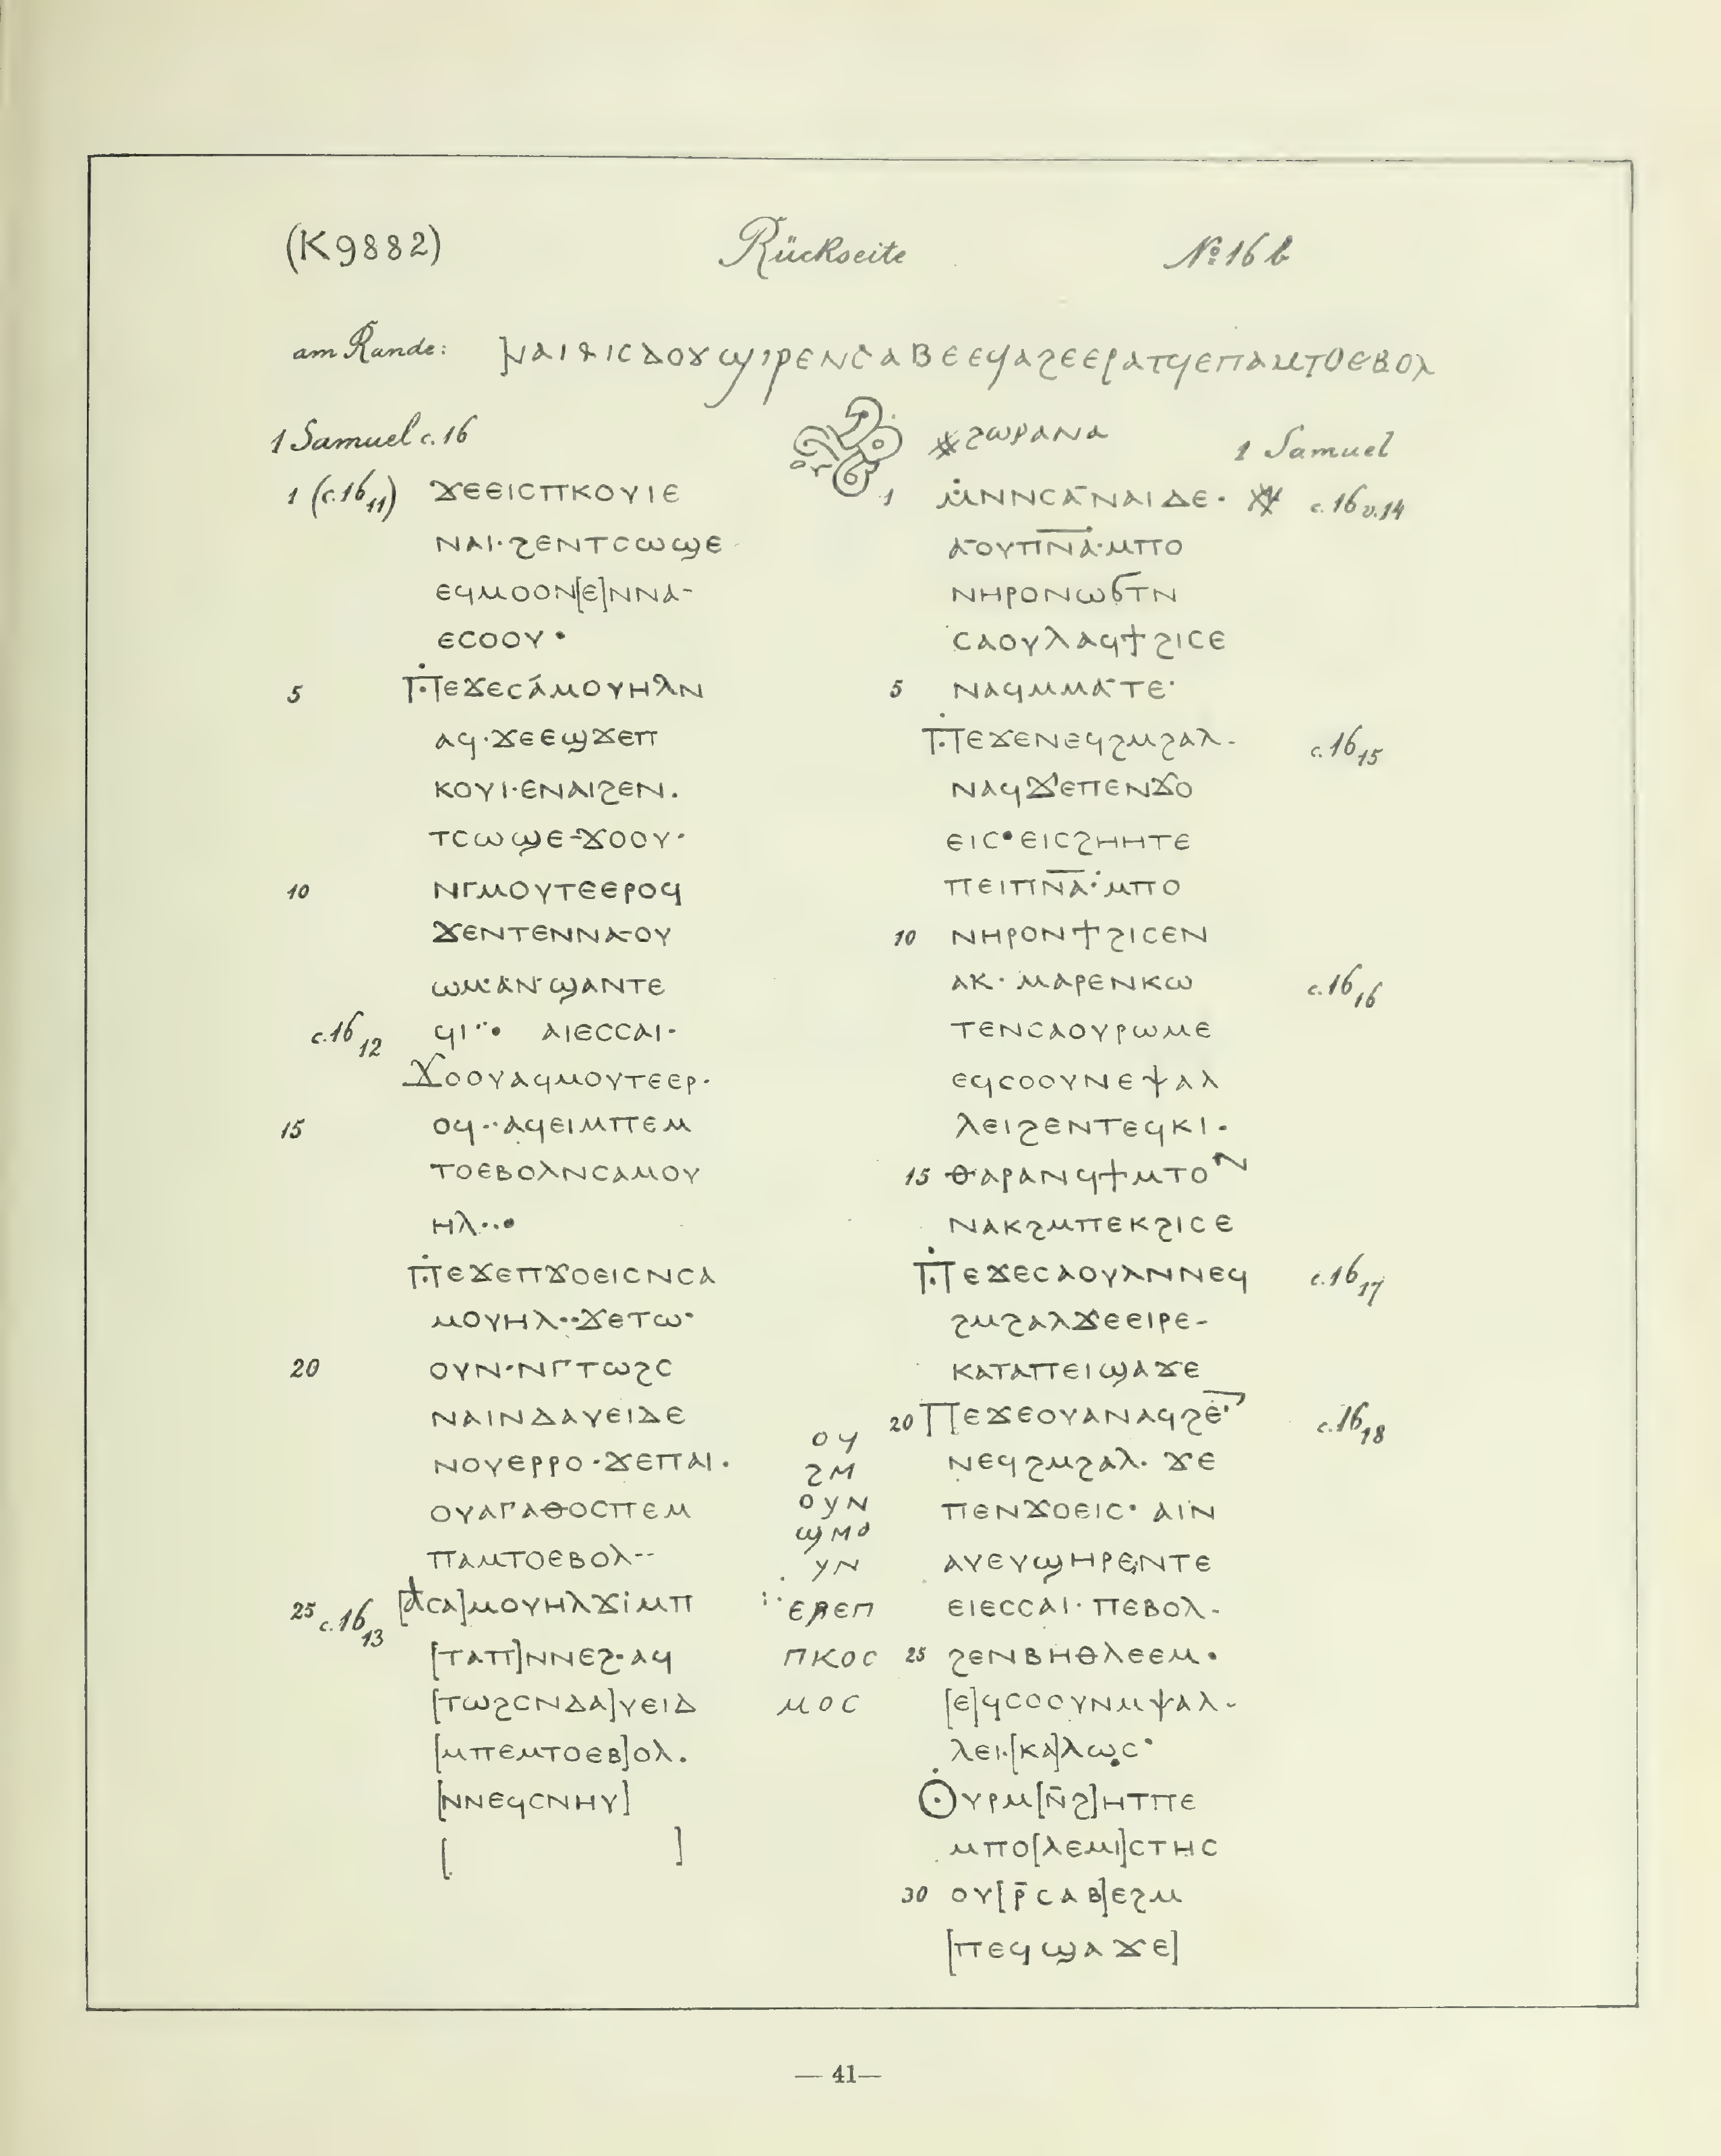 (K9882) Rückseite No 16 b
am Rande: ]ⲛⲁⲓⲁⲓⲥⲇⲟⲩϣⲓⲣⲉⲛⲥⲁⲃⲉⲉϥⲁϩⲉⲉⲣⲁⲧϥⲉⲡⲁⲙⲧⲟⲉⲃⲟⲗ
1 Samuel c. 16
1 (c. 16 11) ϫⲉⲉⲓⲥⲡⲕⲟⲩⲓⲉ
ⲛⲁⲓ·ϩⲉⲛⲧⲥⲱϣⲉ
ⲉϥⲙⲟⲟⲛ[ⲉ]ⲛⲛⲁ-
ⲉⲥⲟⲟⲩ •
5 ⲡⲉϫⲉⲥⲁⲙⲟⲩⲏⲗⲛ
ⲁϥ·ϫⲉⲉϣϫⲉⲡ
ⲕⲟⲩⲓ·ⲉⲛⲁⲓϩⲉⲛ.
ⲧⲥⲱϣⲉ-ϫⲟⲟⲩ·
10 ⲛⲅⲙⲟⲩⲧⲉⲉⲣⲟϥ
ϫⲉⲛⲧⲉⲛⲛⲁⲟⲩ
ⲱⲙ·ⲁⲛ·ϣⲁⲛⲧⲉ
c. 16 12 ϥⲓ··• ⲁⲓⲉⲥⲥⲁⲓ·
ϫⲟⲟⲩⲁϥⲙⲟⲩⲧⲉⲉⲣ·
15 ⲟϥ··ⲁϥⲉⲓⲙⲡⲉⲙ
ⲧⲟⲉⲃⲟⲗⲛⲥⲁⲙⲟⲩ
ⲏⲗ··•
ⲡⲉϫⲉⲡϫⲟⲉⲓⲥⲛⲥⲁ
ⲙⲟⲩⲏⲗ··ϫⲉⲧⲱ·
20 ⲟⲩⲛ·ⲛⲅⲧⲱϩⲥ
ⲛⲁⲓⲛⲇⲁⲩⲉⲓⲇⲉ
ⲛⲟⲩⲉⲣⲣⲟ·ϫⲉⲡⲁⲓ·
ⲟⲩⲁⲅⲁⲑⲟⲥⲡⲉⲙ
ⲡⲁⲙⲧⲟⲉⲃⲟⲗ--
25 c. 16 13 [ⲁⲥⲁ]ⲙⲟⲩⲏⲗϫⲓⲙⲡ
[ⲧⲁⲡ]ⲛⲛⲉϩ·ⲁϥ
[ⲧⲱϩⲥⲛⲇⲁ]ⲩⲉⲓⲇ
[ⲙⲡⲉⲙⲧⲟⲉⲃ]ⲟⲗ.
[ⲛⲛⲉϥⲥⲛⲏⲩ]
[ ]
ⲟⲩ
ϩⲙ
ⲟⲩⲛ
ϣⲙⲟ
ⲩⲛ
ⲉⲣⲉⲡ
ⲡⲕⲟⲥ
ⲙⲟⲥ
※ϩⲱⲣⲁⲛⲁ 1 Samuel
1 ⲙⲛⲛⲥⲁⲛⲁⲓⲇⲉ· ※ c. 16 v. 14
ⲁⲟⲩⲡⲛ̅ⲁ̅·ⲙⲡⲟ
ⲛⲏⲣⲟⲛⲱϭⲧⲛ
ⲥⲁⲟⲩⲗⲁϥϯϩⲓⲥⲉ
5 ⲛⲁϥⲙⲙⲁⲧⲉ·
ⲡⲉϫⲉⲛⲉϥϩⲙϩⲁⲗ- c. 16 15
ⲛⲁϥϫⲉⲡⲉⲛϫⲟ
ⲉⲓⲥ•ⲉⲓⲥϩⲏⲏⲧⲉ
ⲡⲉⲓⲡⲛ̅ⲁ̅·ⲙⲡⲟ
10 ⲛⲏⲣⲟⲛϯϩⲓⲥⲉⲛ
ⲁⲕ· ⲙⲁⲣⲉⲛⲕⲱ c. 16 16
ⲧⲉⲛⲥⲁⲟⲩⲣⲱⲙⲉ
ⲉϥⲥⲟⲟⲩⲛⲉⲯⲁⲗ
ⲗⲉⲓϩⲉⲛⲧⲉϥⲕⲓ·
15 ⲑⲁⲣⲁⲛϥϯⲙⲧⲟⲛ
ⲛⲁⲕϩⲙⲡⲉⲕϩⲓⲥⲉ
ⲡⲉϫⲉⲥⲁⲟⲩⲗⲛⲛⲉϥ c. 16 17
ϩⲙϩⲁⲗϫⲉⲉⲓⲣⲉ-
ⲕⲁⲧⲁⲡⲉⲓϣⲁϫⲉ
20 ⲡⲉϫⲉⲟⲩⲁⲛⲁϥϩⲉ̅· c. 16 18
ⲛⲉϥϩⲙϩⲁⲗ· ϫⲉ
ⲡⲉⲛϫⲟⲉⲓⲥ· ⲁⲓⲛ
ⲁⲩⲉⲩϣⲏⲣⲉⲛⲧⲉ
ⲉⲓⲉⲥⲥⲁⲓ· ⲡⲉⲃⲟⲗ-
25 ϩⲉⲛⲃⲏⲑⲗⲉⲉⲙ·
[ⲉ]ϥⲥⲟⲟⲩⲛⲙⲯⲁⲗ-
ⲗⲉⲓ·[ⲕⲁ]ⲗⲱⲥ·
ⲟⲩⲣⲙ[ⲛ̄ϩ]ⲏⲧⲡⲉ
ⲙⲡⲟ[ⲗⲉⲙⲓ]ⲥⲧⲏⲥ
30 ⲟⲩ[ⲣ̄ⲥⲁⲃ]ⲉϩⲙ
[ⲡⲉϥϣⲁϫⲉ]
— 41 —